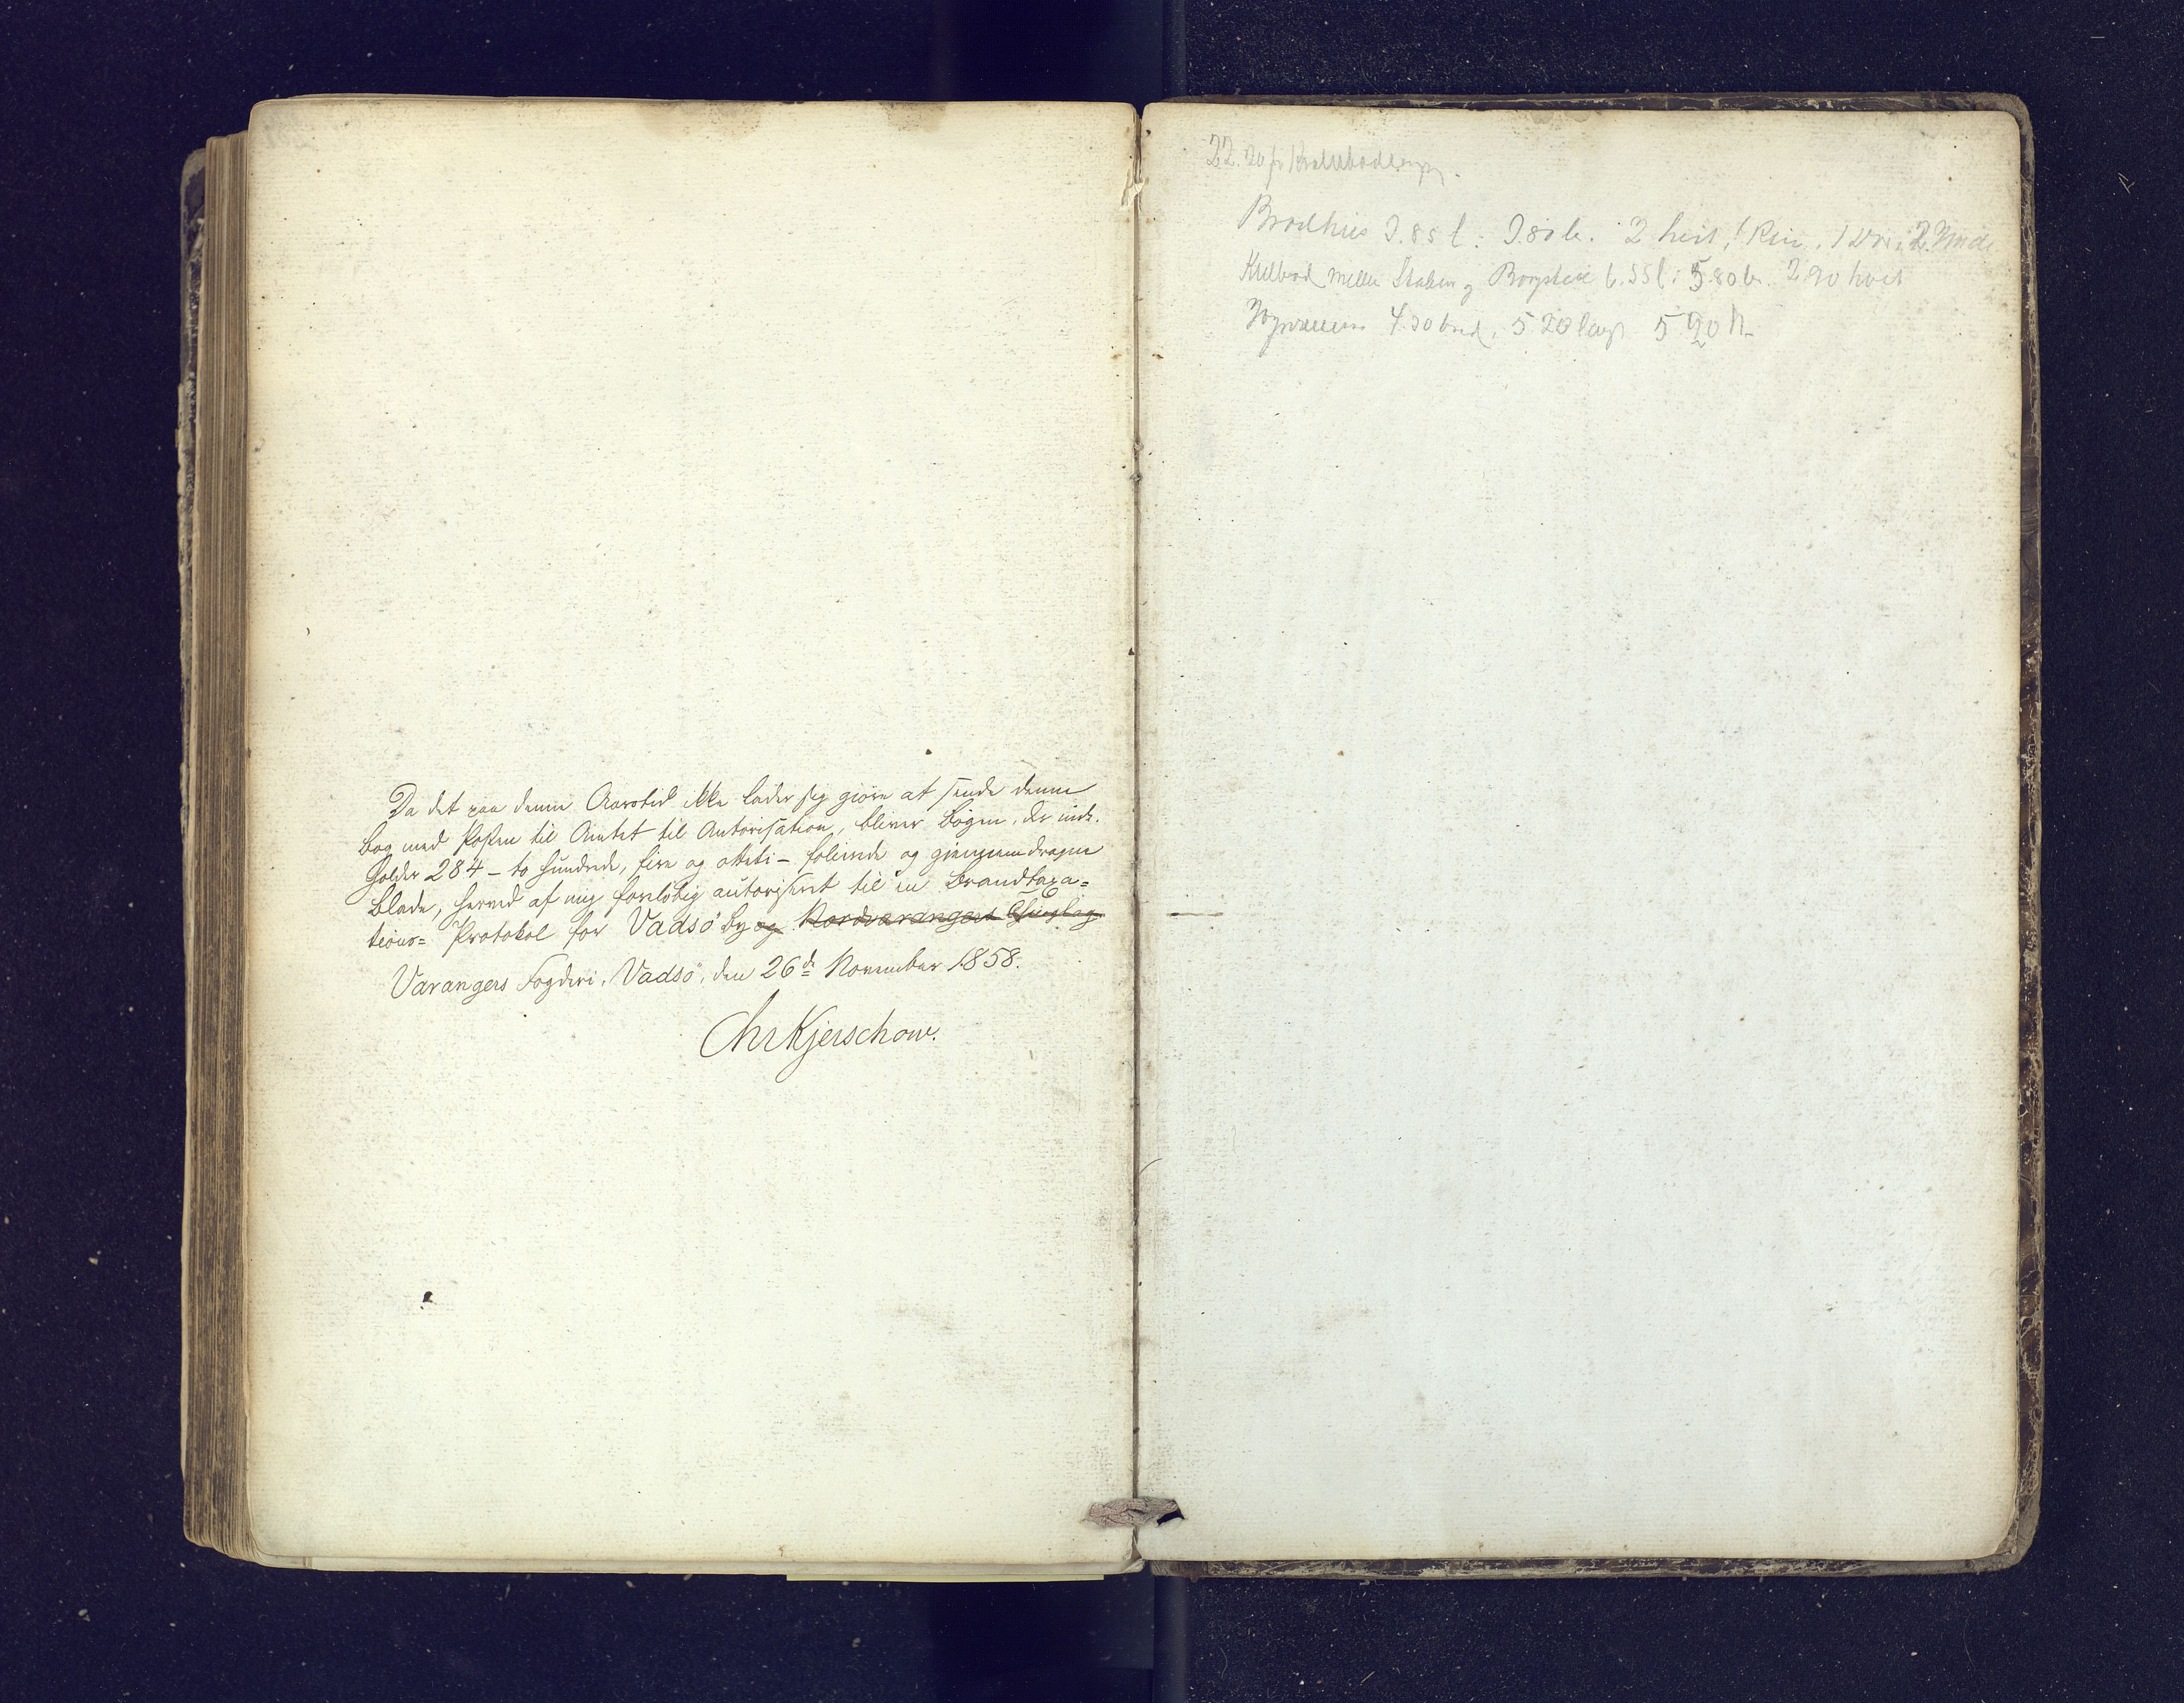 Da det paa denne Aarstid ikke lader sig gjøre at sende denne
Bog med Posten til Amtet til Autorisation, bliver Bogen, der inde-
holder 284 - to hundrede, fire og otteti - folierede og gjennemdragne
Blade, herved af mig foreløbig autoriseret til en Brandtaxa=
tions= Protokol for Vadsö By og Nordvarangers Thinglag
Varangers Fogderi, Vadsö, den 26de November 1858.
Chr Kjerschow.
22.20 fr
Brødhus 3.85 l: 3.80 br. 2 heit, 1
mellem Stalden og 6.55 l: 5.80 br. 2.90 høit
4.30 bred. 5 20 lang 5 90 h